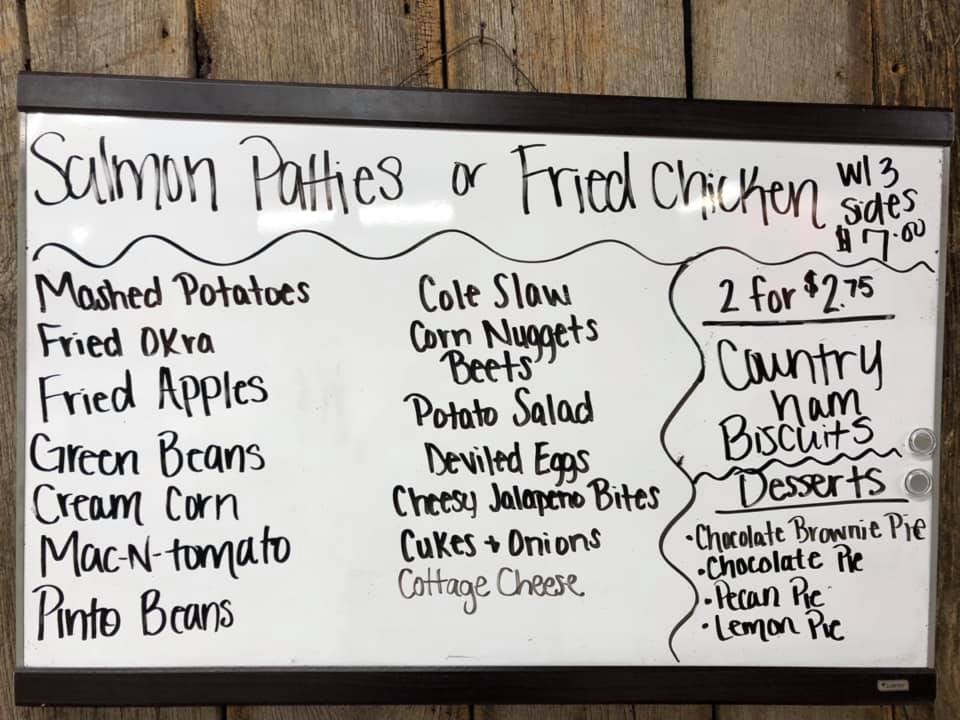 Salmon Patties or Fried Chicken
w/ 3
sides
$7.00
Mashed Potatoes
Fried Okra
Fried Apples
Green Beans
Cream Corn
Mac-N-tomato
Pinto Beans
Cole Slaw
Corn Nuggets
Beets
Potato Salad
Deviled Eggs
Cheesy Jalapeno Bites
Cukes + Onions
Cottage Cheese
2 for $2.75
Country
ham
Biscuits
Desserts
•Chocolate Brownie Pie
•Chocolate Pie
•Pecan Pie
•Lemon Pie